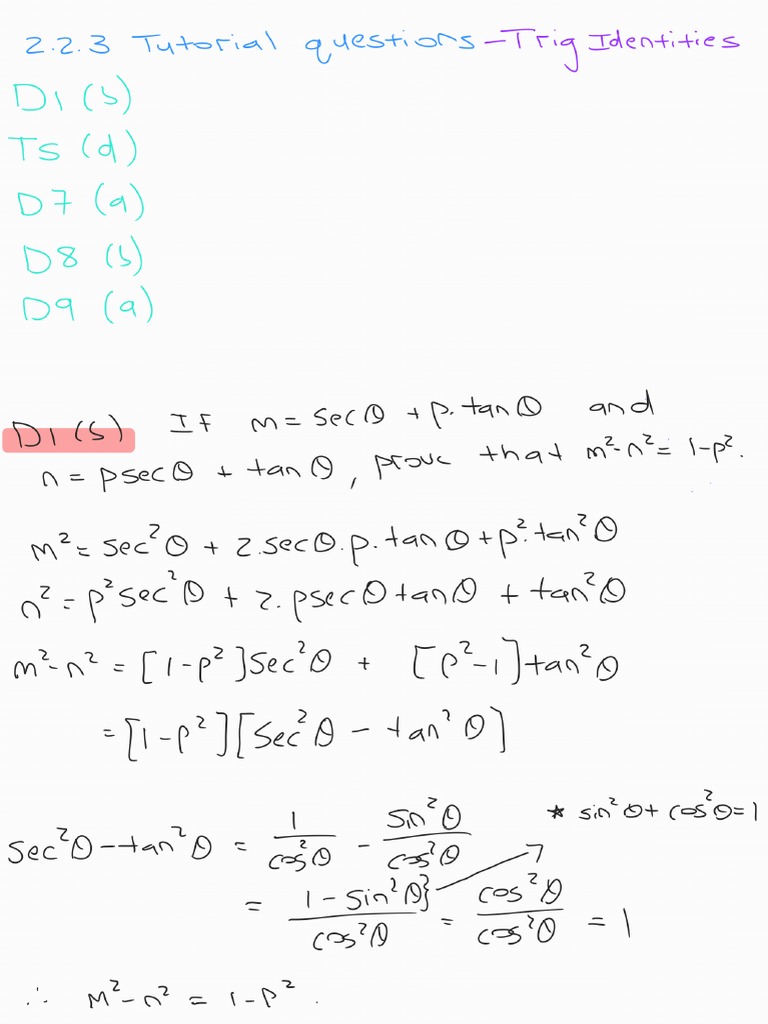 2.2.3 Tutorial questions - Trig Identities
D1 (b)
T5 (d)
D7 (a)
D8 (b)
D9 (a)
D1 (b) If m = secθ + p.tanθ and
n = psecθ + tanθ, prove that m²-n² = 1-p².
m² = sec²θ + 2.secθ.p.tanθ + p².tan²θ
n² = p²sec²θ + 2.psecθtanθ + tan²θ
m²-n² = [1-p²]sec²θ + [p²-1]tan²θ
= [1-p²][sec²θ - tan²θ]
* sin²θ + cos²θ = 1
sec²θ - tan²θ = 1/cos²θ - sin²θ/cos²θ
= 1 - sin²θ}/cos²θ = cos²θ/cos²θ = 1
∴ m²-n² = 1-p².